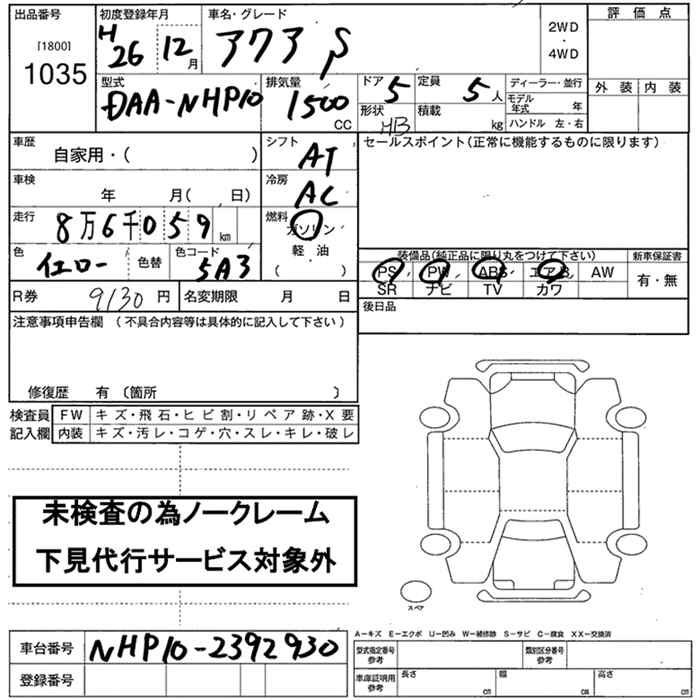 出品番号 初度登録年月 車名・グレード 評価点
[1800] H 26 12月 アクア S 2WD
・
1035 4WD
型式 排気量 ドア 定員 ディーラー・並行 外装 内装
DAA-NHP10 1500 CC 5 5人 モデル年式 年
形状 HB 積載 kg ハンドル 左・右
車歴 シフト セールスポイント(正常に機能するものに限ります)
自家用・( ) AT
車検 冷房
年 月( 日) AC
走行 燃料
8万6千059km ガソリン
色 色コード 軽油 装備品(純正品に限り丸をつけて下さい) 新車保証書
イエロー 色替 5A3 ( ) PS PW ABS エアB AW 有・無
SR ナビ TV カワ
R券 9130円 名変期限 月 日 後日品
注意事項申告欄 (不具合内容等は具体的に記入して下さい)
修復歴 有 〔箇所 〕
検査員 FW キズ・飛石・ヒビ割・リペア跡・X要
記入欄 内装 キズ・汚レ・コゲ・穴・スレ・キレ・破レ
未検査の為ノークレーム
下見代行サービス対象外
スペア
A-キズ E-エクボ U-凹み W-補修跡 S-サビ C-腐食 XX-交換済
車台番号 NHP10-2392930 型式指定番号 参考 類別区分番号 参考
登録番号 車庫証明用 参考 長さ cm 幅 cm 高さ cm